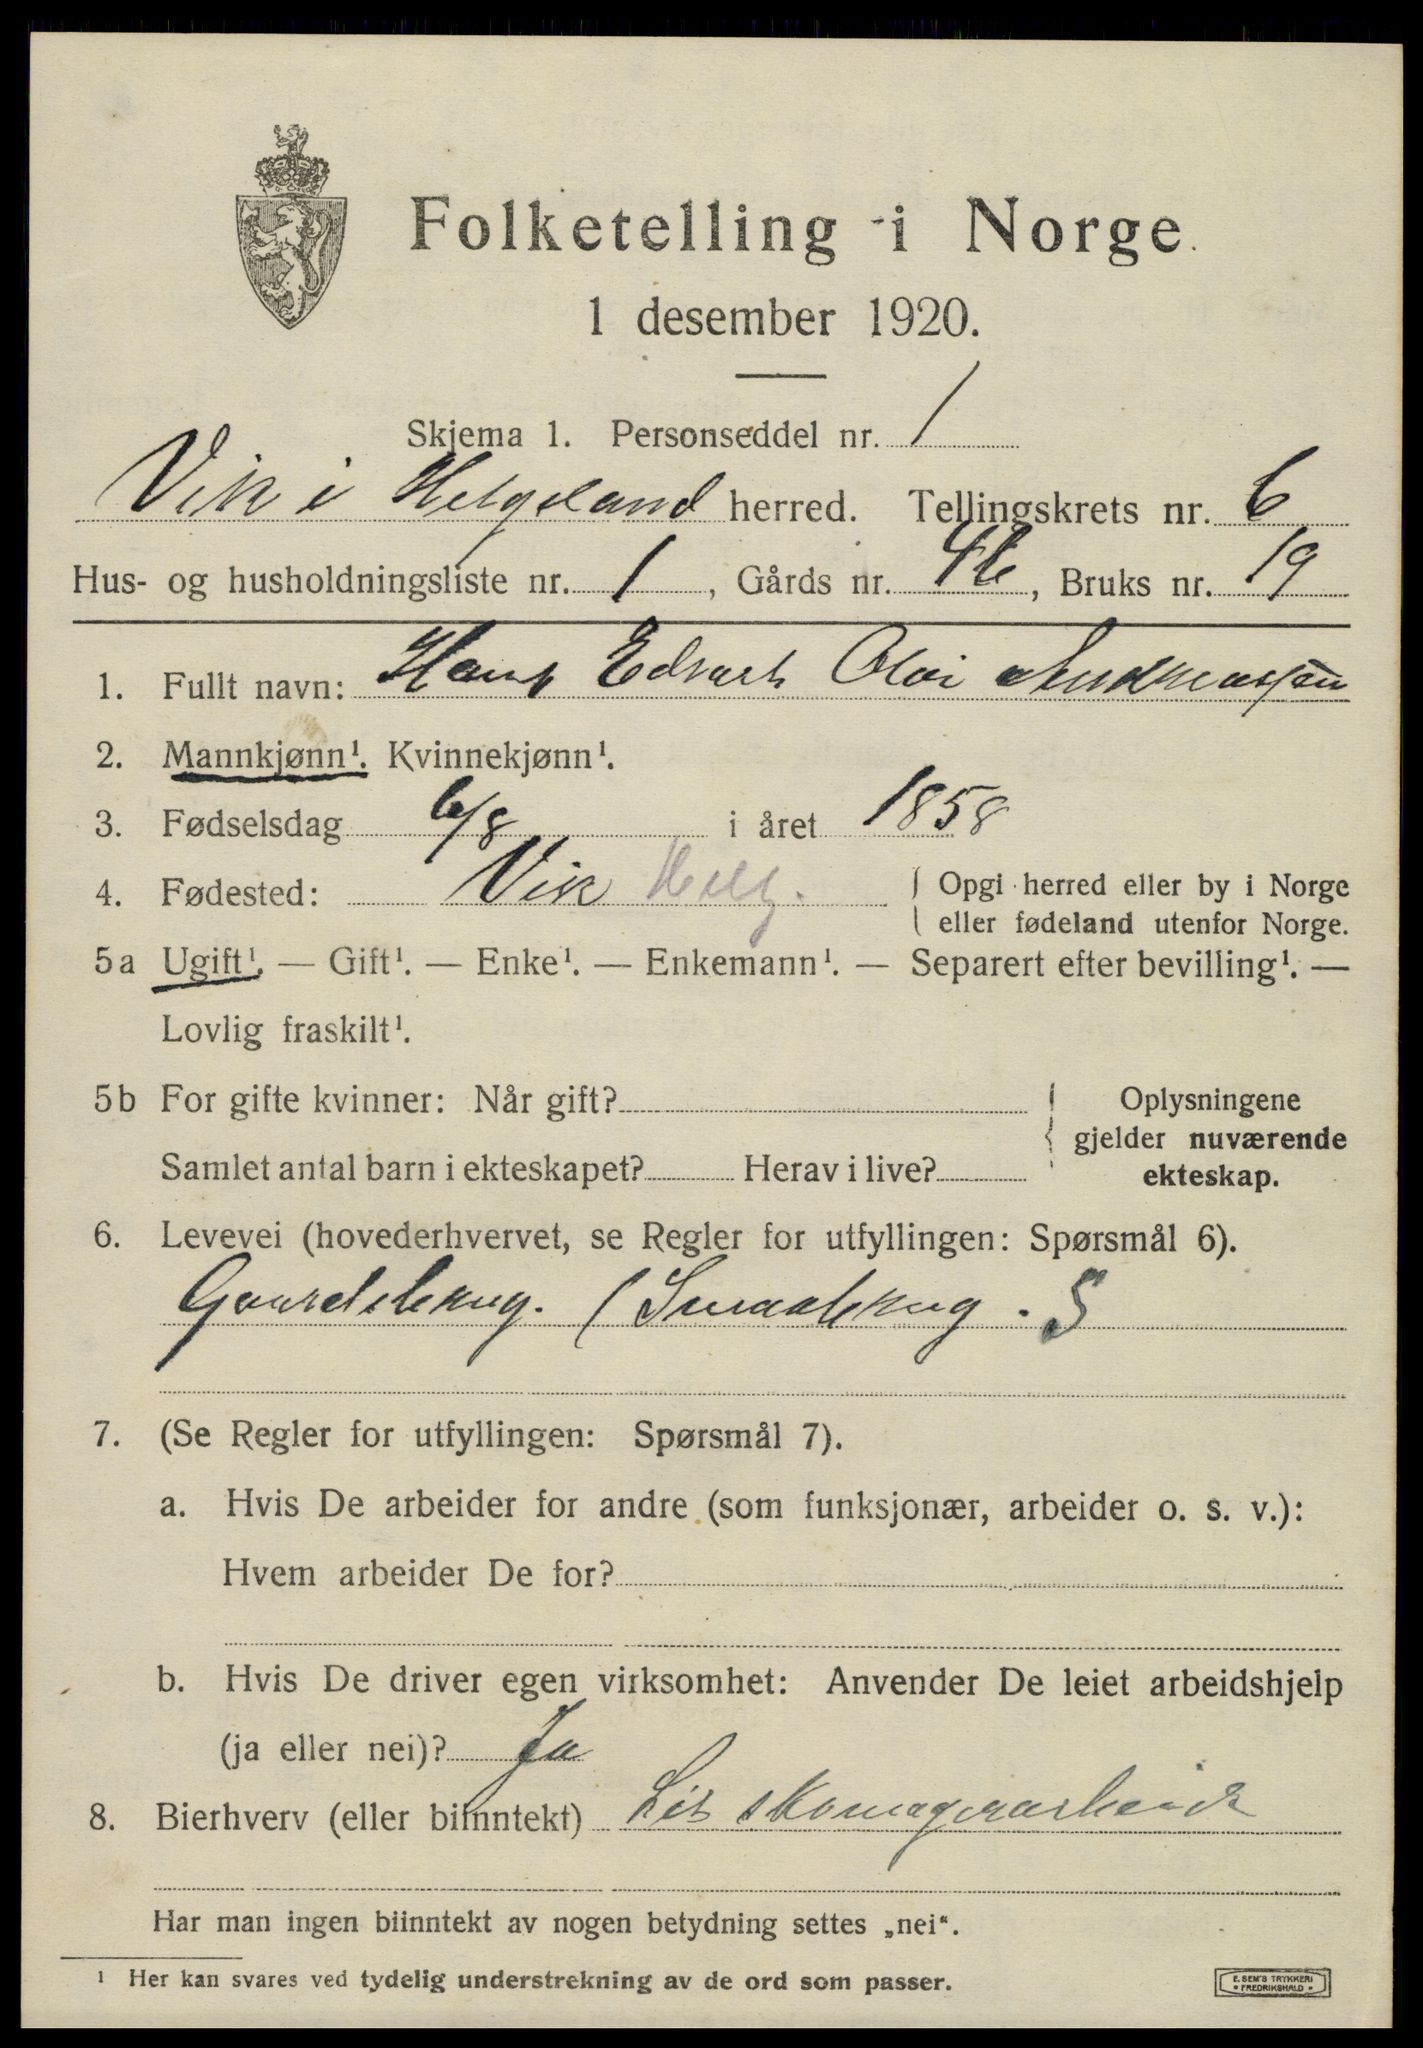 Folketelling i Norge
1 desember 1920.
Skjema 1. Personseddel nr. 1
Vik i Helgeland herred. Tellingskrets nr. 6
Hus- og husholdningsliste nr. 1, Gårds nr. 46, Bruks nr. 19
1. Fullt navn: Hans Edvart Olai Andreassen
2. Mannkjønn¹. Kvinnekjønn¹.
3. Fødselsdag 6/8 i året 1858
4. Fødested: Vik Helg. { Opgi herred eller by i Norge
eller fødeland utenfor Norge.
5a Ugift¹. — Gift¹. — Enke¹. — Enkemann¹. — Separert efter bevilling¹. —
Lovlig fraskilt¹.
5b For gifte kvinner: Når gift? { Oplysningene
gjelder nuværende
Samlet antal barn i ekteskapet? Herav i live?
ekteskap.
6. Levevei (hovederhvervet, se Regler for utfyllingen: Spørsmål 6).
Gaardsbrug. (Smaabrug. S
7. (Se Regler for utfyllingen: Spørsmål 7).
a. Hvis De arbeider for andre (som funksjonær, arbeider o. s. v.):
Hvem arbeider De for?
b. Hvis De driver egen virksomhet: Anvender De leiet arbeidshjelp
(ja eller nei)? Ja
8. Bierhverv (eller biinntekt) Lit skomagerarbeide
Har man ingen biinntekt av nogen betydning settes „nei“.
¹ Her kan svares ved tydelig understrekning av de ord som passer.
E. SEM'S TRYKKERI
• FREDRIKSHALD •